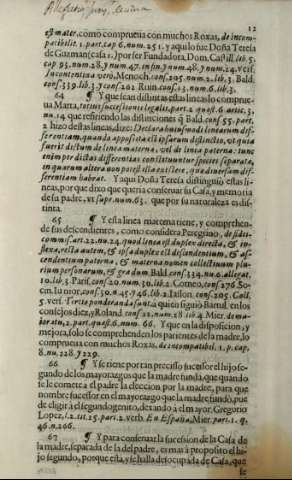 12
est mater. como comprueua con muchos Roxas, de incom-
patibilit. 1. part. cap. 6. num. 25 1. y aqui lo fue Doña Teresa
de Guzman (casa 1.) por ser Fundadora, Dom. Castill. lib. 5.
cap. 93. num. 28. y num. 47. in fin. y num. 48. y num. 24. vers.
Si contentina vero, Menoch. cons. 205. num. 2. lib. 3. Bald.
cons. 339. lib. 3. y cons. 202 Ruin. cons. 13. num. 6. lib. 3.
64 ¶ Y que sean distintas estas lineas lo comprue-
ua Marta, tertius successiones legalis, part. 2. quæst. 6. artic. 3.
nu. 14. que refiriendo las distinciones q̃ Bald. cons. 55. part.
2. hizo destas lineas, dize: Declara huiusmodi linearum dif-
ferentiam, quando apposita est ipsarum distinctio, vt quia
fuerit dictum de linea materna, vel de linea paterna: tunc
enim per dictas differentias constituuntur species separatæ,
in quarum altera non potest alia existere, quia diuersam dif-
ferentiam habeat. Y aqui Doña Teresa distinguiò estas li-
neas, por que dixo que queria conseruar su Casa, y memoria
de su padre, vt supr. num. 63. que por su naturaleza es dis-
tinta.
65 ¶ Y esta linea materna tiene, y comprehen-
de sus descendientes, como considera Peregrino, de fidei-
commiss. art. 22. nu. 24. quod linea est duplex directa, & in-
flexa, recta autem, & ipsa duplex est descendentium, & as-
cendentium paterna, & materna nomen collectiuum plu-
rium personarum, & gradum Bald. cons. 334. nu. 6. allegat.
10. lib. 3. Paris. cons. 20. num. 30. lib. 2. Corneo, cons. 276. So-
cin. Iunior, cons. 30. n. 45. 746. lib. 2. Iasson. cons. 205. Coll.
5. vers. Tertio ponderanda sunt, a quien siguiò Bartul. en los
consejos diez, y Roland cons. 22. num. 28. lib. 4. Mier. de ma-
iorat. 2. part. quæst. 6. num. 66. Y que en la disposicion, y
mejora, solo se comprehenden los parientes de la madre, lo
comprueua con muchos Roxas, de incompatibil. 1. p. cap.
8. nu. 228. y 229.
66 ¶ Y se tiene por tan preciso sucessor el hijo se-
gundo de los mayorazgos que la madre fundò, que quando
se le comete a el padre la eleccion por la madre, para que
nombre sucessor en el mayorazgo que la madre fundò, pue-
de elegir à el segundogenito, dexando à el mayor. Gregorio
Lopez, l. 2. tit. 25. part. 2. verb. En España, Mier. part. 1. q.
46. n. 266.
67 ¶ Y para conseruar la sucession de la Casa de
la madre, separada de la del padre, es mas à proposito el hi-
jo segundo, porque esta, y se halla desocupada de Casa, que
se